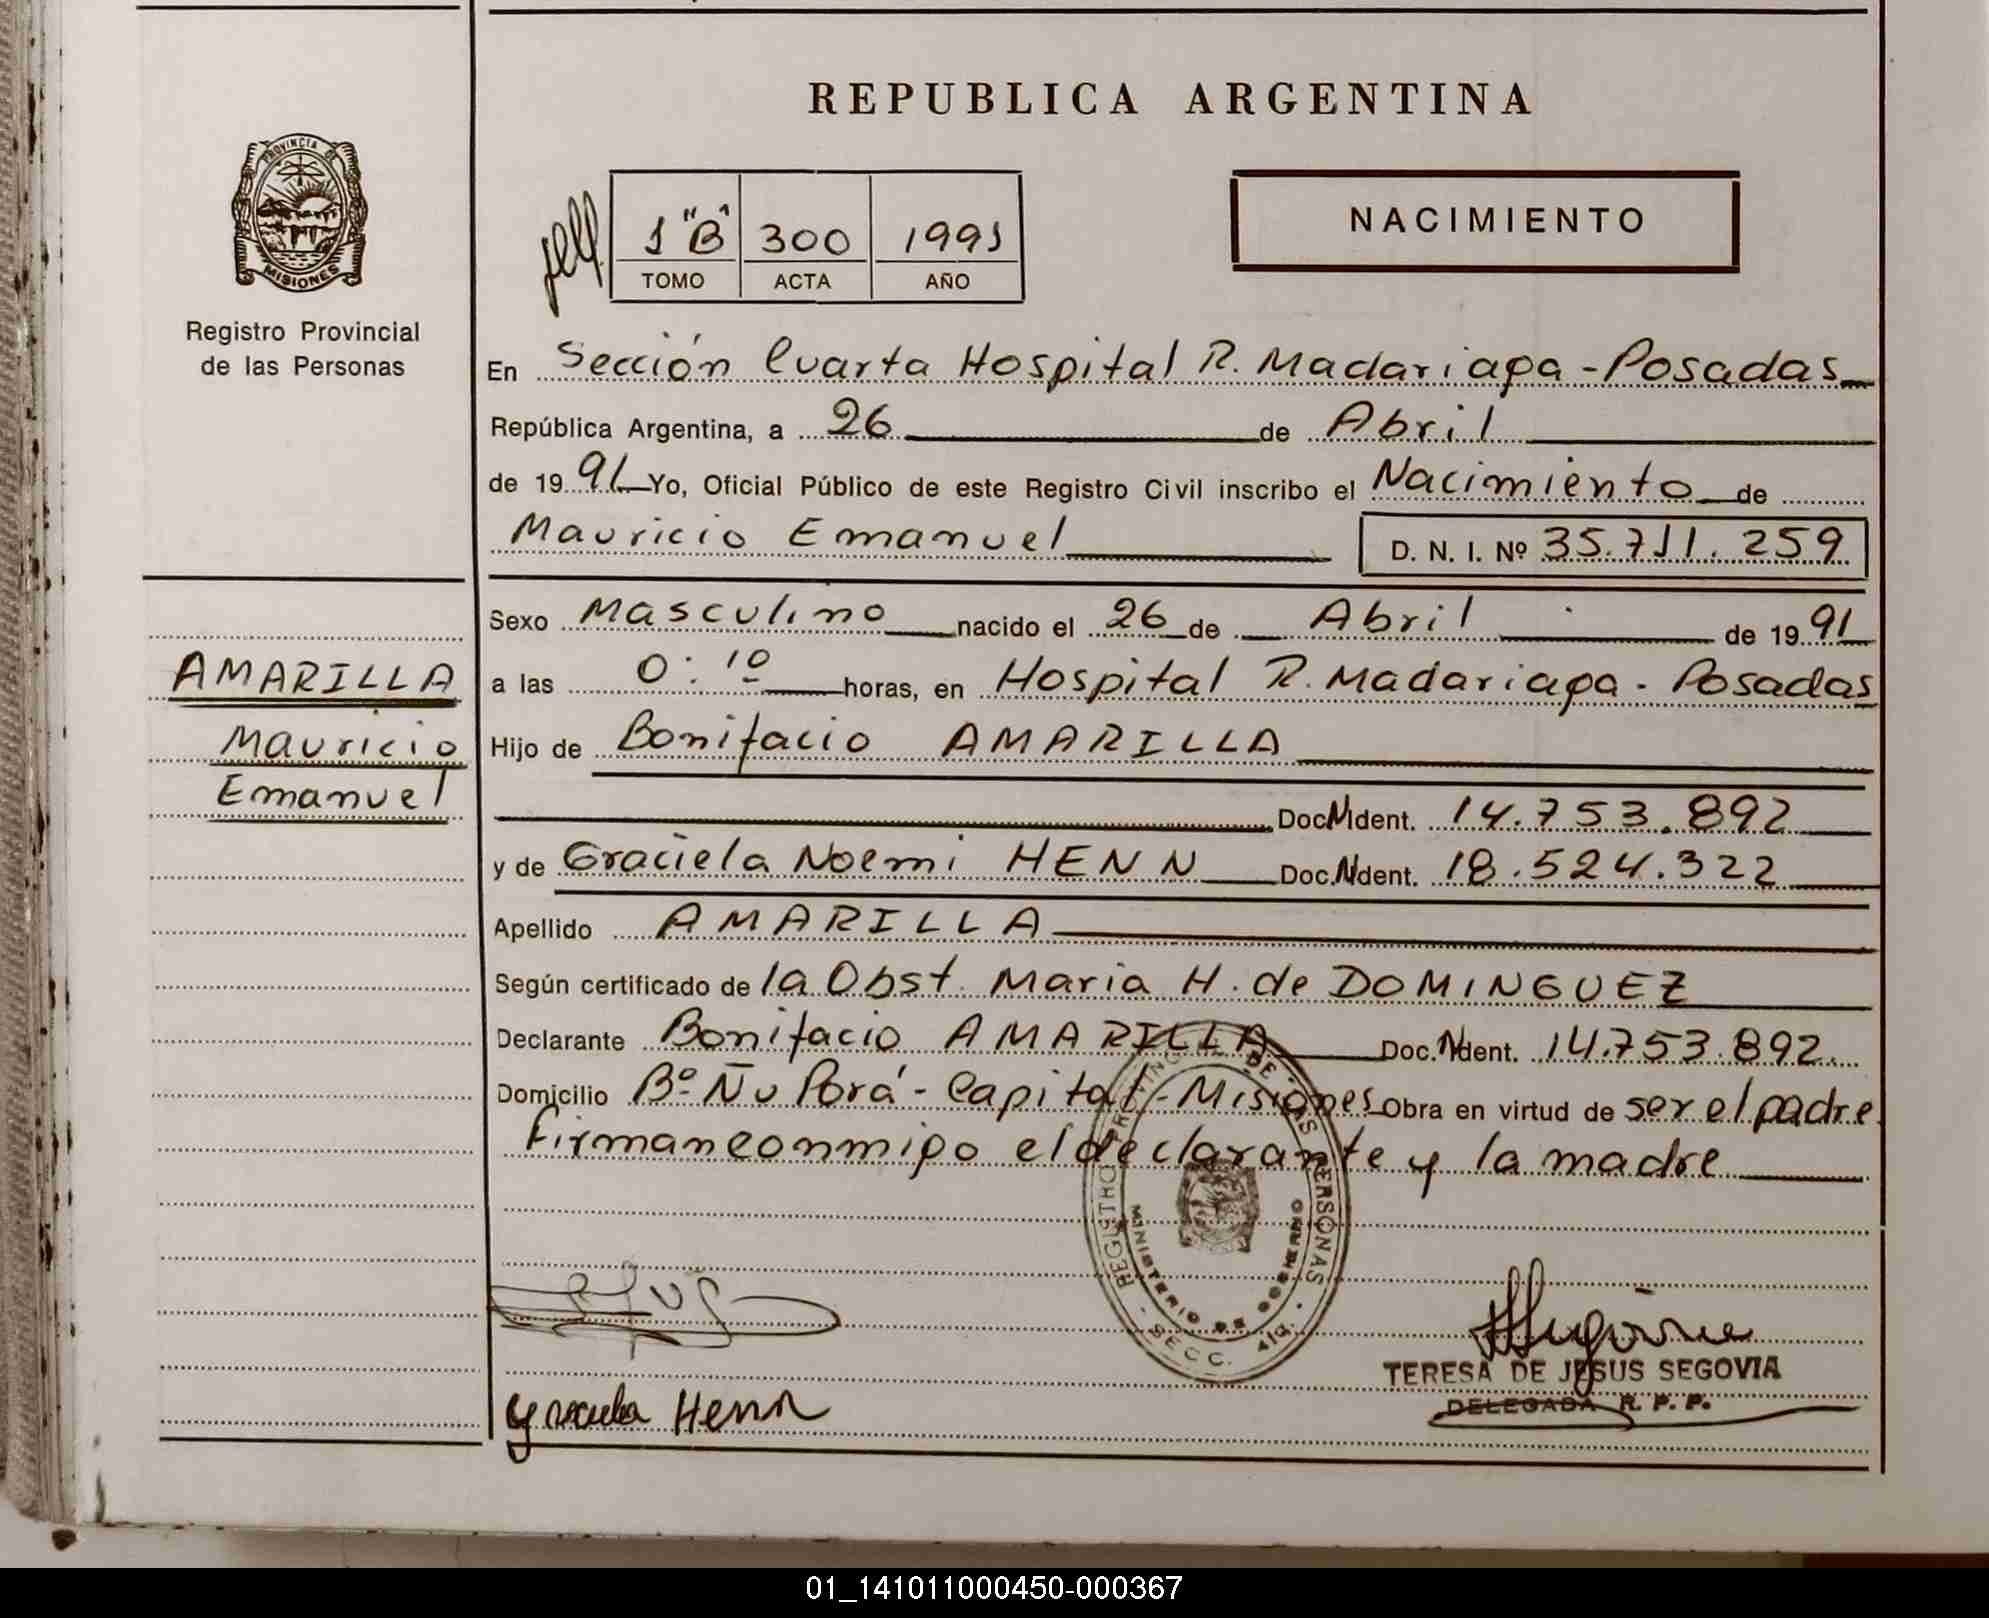 REPUBLICA ARGENTINA
PROVINCIA DE
MISIONES
Registro Provincial
de las Personas
1 "B" 300 1991
TOMO ACTA AÑO
NACIMIENTO
En Sección Cuarta Hospital R. Madariaga - Posadas
República Argentina, a 26 de Abril
de 19 91 Yo, Oficial Público de este Registro Civil inscribo el Nacimiento de
Mauricio Emanuel D. N. I. Nº 35.711.259
Sexo Masculino nacido el 26 de Abril de 19 91
AMARILLA
a las 0:10 horas, en Hospital R. Madariaga - Posadas
Mauricio
Hijo de Bonifacio AMARILLA
Emanuel
Doc. N Ident. 14.753.892
y de Graciela Noemi HENN Doc. N Ident. 18.524.322
Apellido AMARILLA
Según certificado de la Obst. Maria H. de DOMINGUEZ
Declarante Bonifacio AMARILLA Doc. N Ident. 14.753.892.
Domicilio Bº Ñu Porá - Capital - Misiones Obra en virtud de ser el padre
Firman conmigo el declarante y la madre
REGISTRO PROVINCIAL DE LAS PERSONAS
MINISTERIO DE GOBIERNO
SECC. 4ta.
TERESA DE JESUS SEGOVIA
DELEGADA R. P. P.
Graciela Henn
01_141011000450-000367